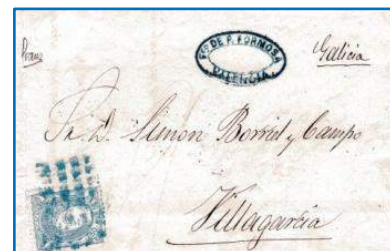 Franco
Fco DE P. FORMOSA
VALENCIA
Galicia
Sr. D. Simon Borrás y Campo
Villagarcia